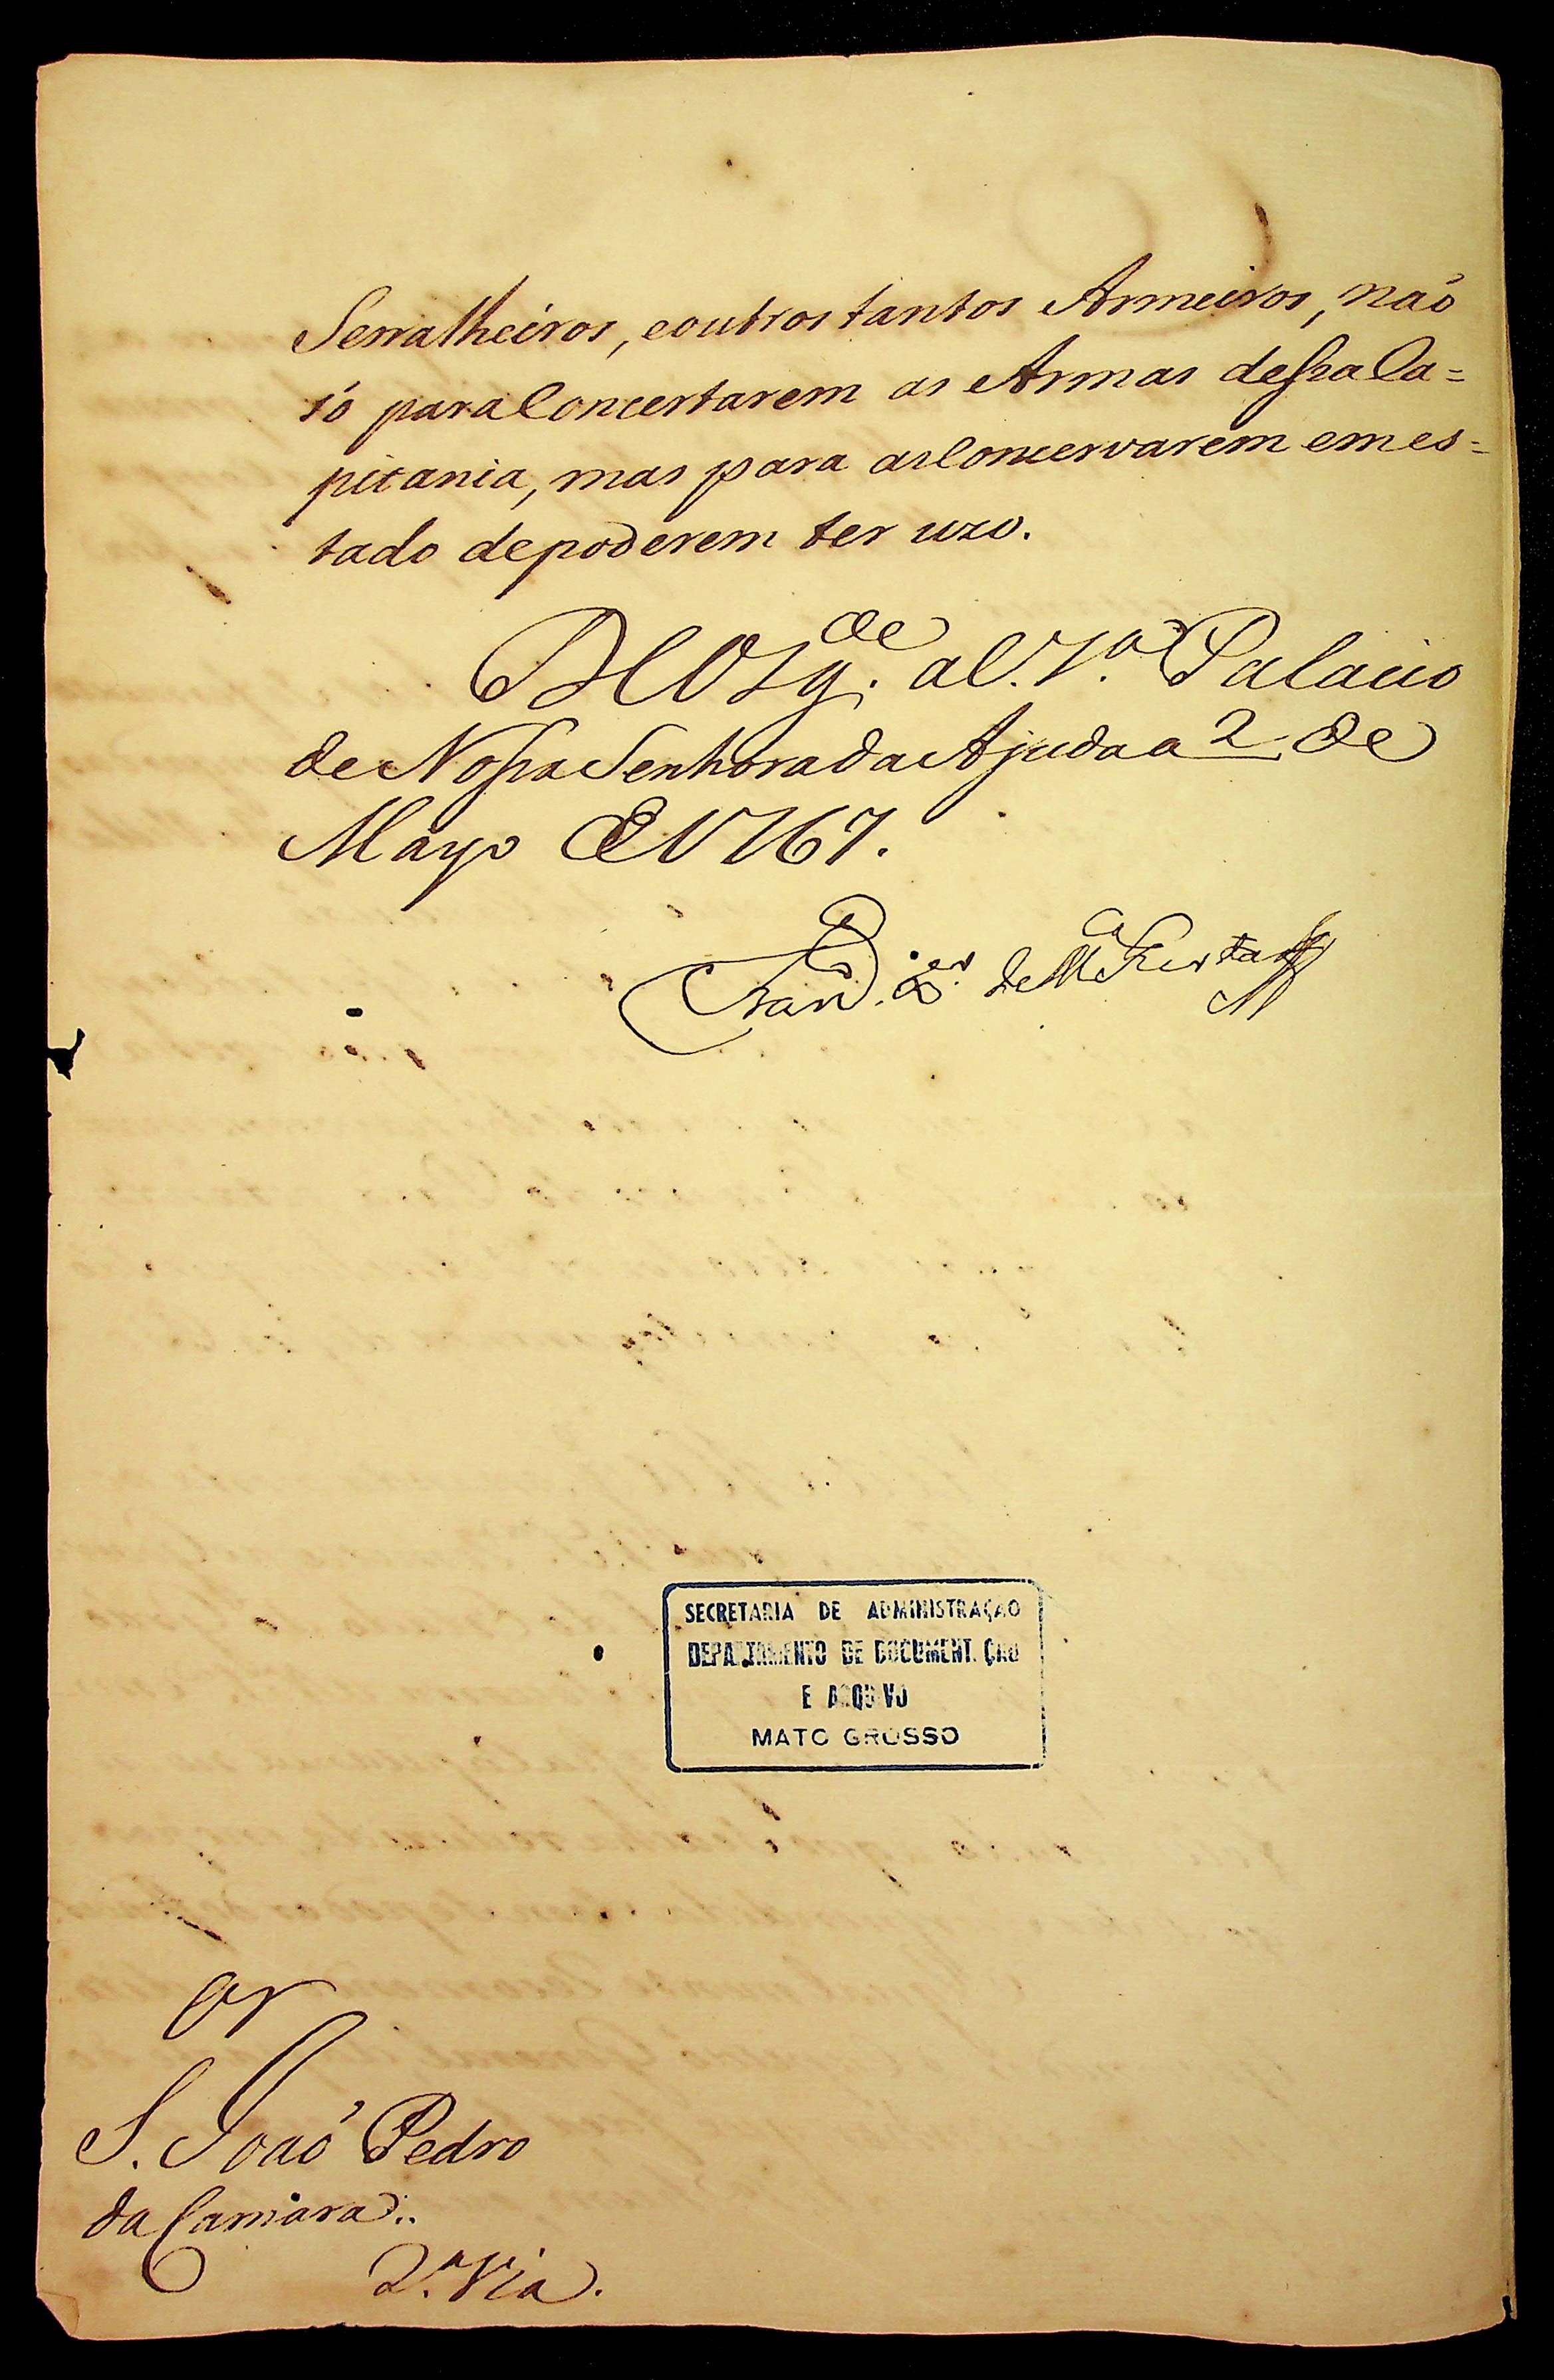 Serralheiros, eoutros tantos Armeiros, naõ
só paraConcertarem as Armas dessaCa=
pitania, mas para asConcervarem emes=
tado depoderem ter uzo.
DEOS g.de a V. S.a Palacio
de NossaSenhoradaAjuda a 2 de
Mayo de 1767.
Fran.co X.er de M.ça Furtado
SECRETARIA DE ADMINISTRAÇÃO
DEPARTAMENTO DE DOCUMENTAÇÃO
E ARQUIVO
MATO GROSSO
or
S. Joaõ Pedro
da Camara.
2.a Via.